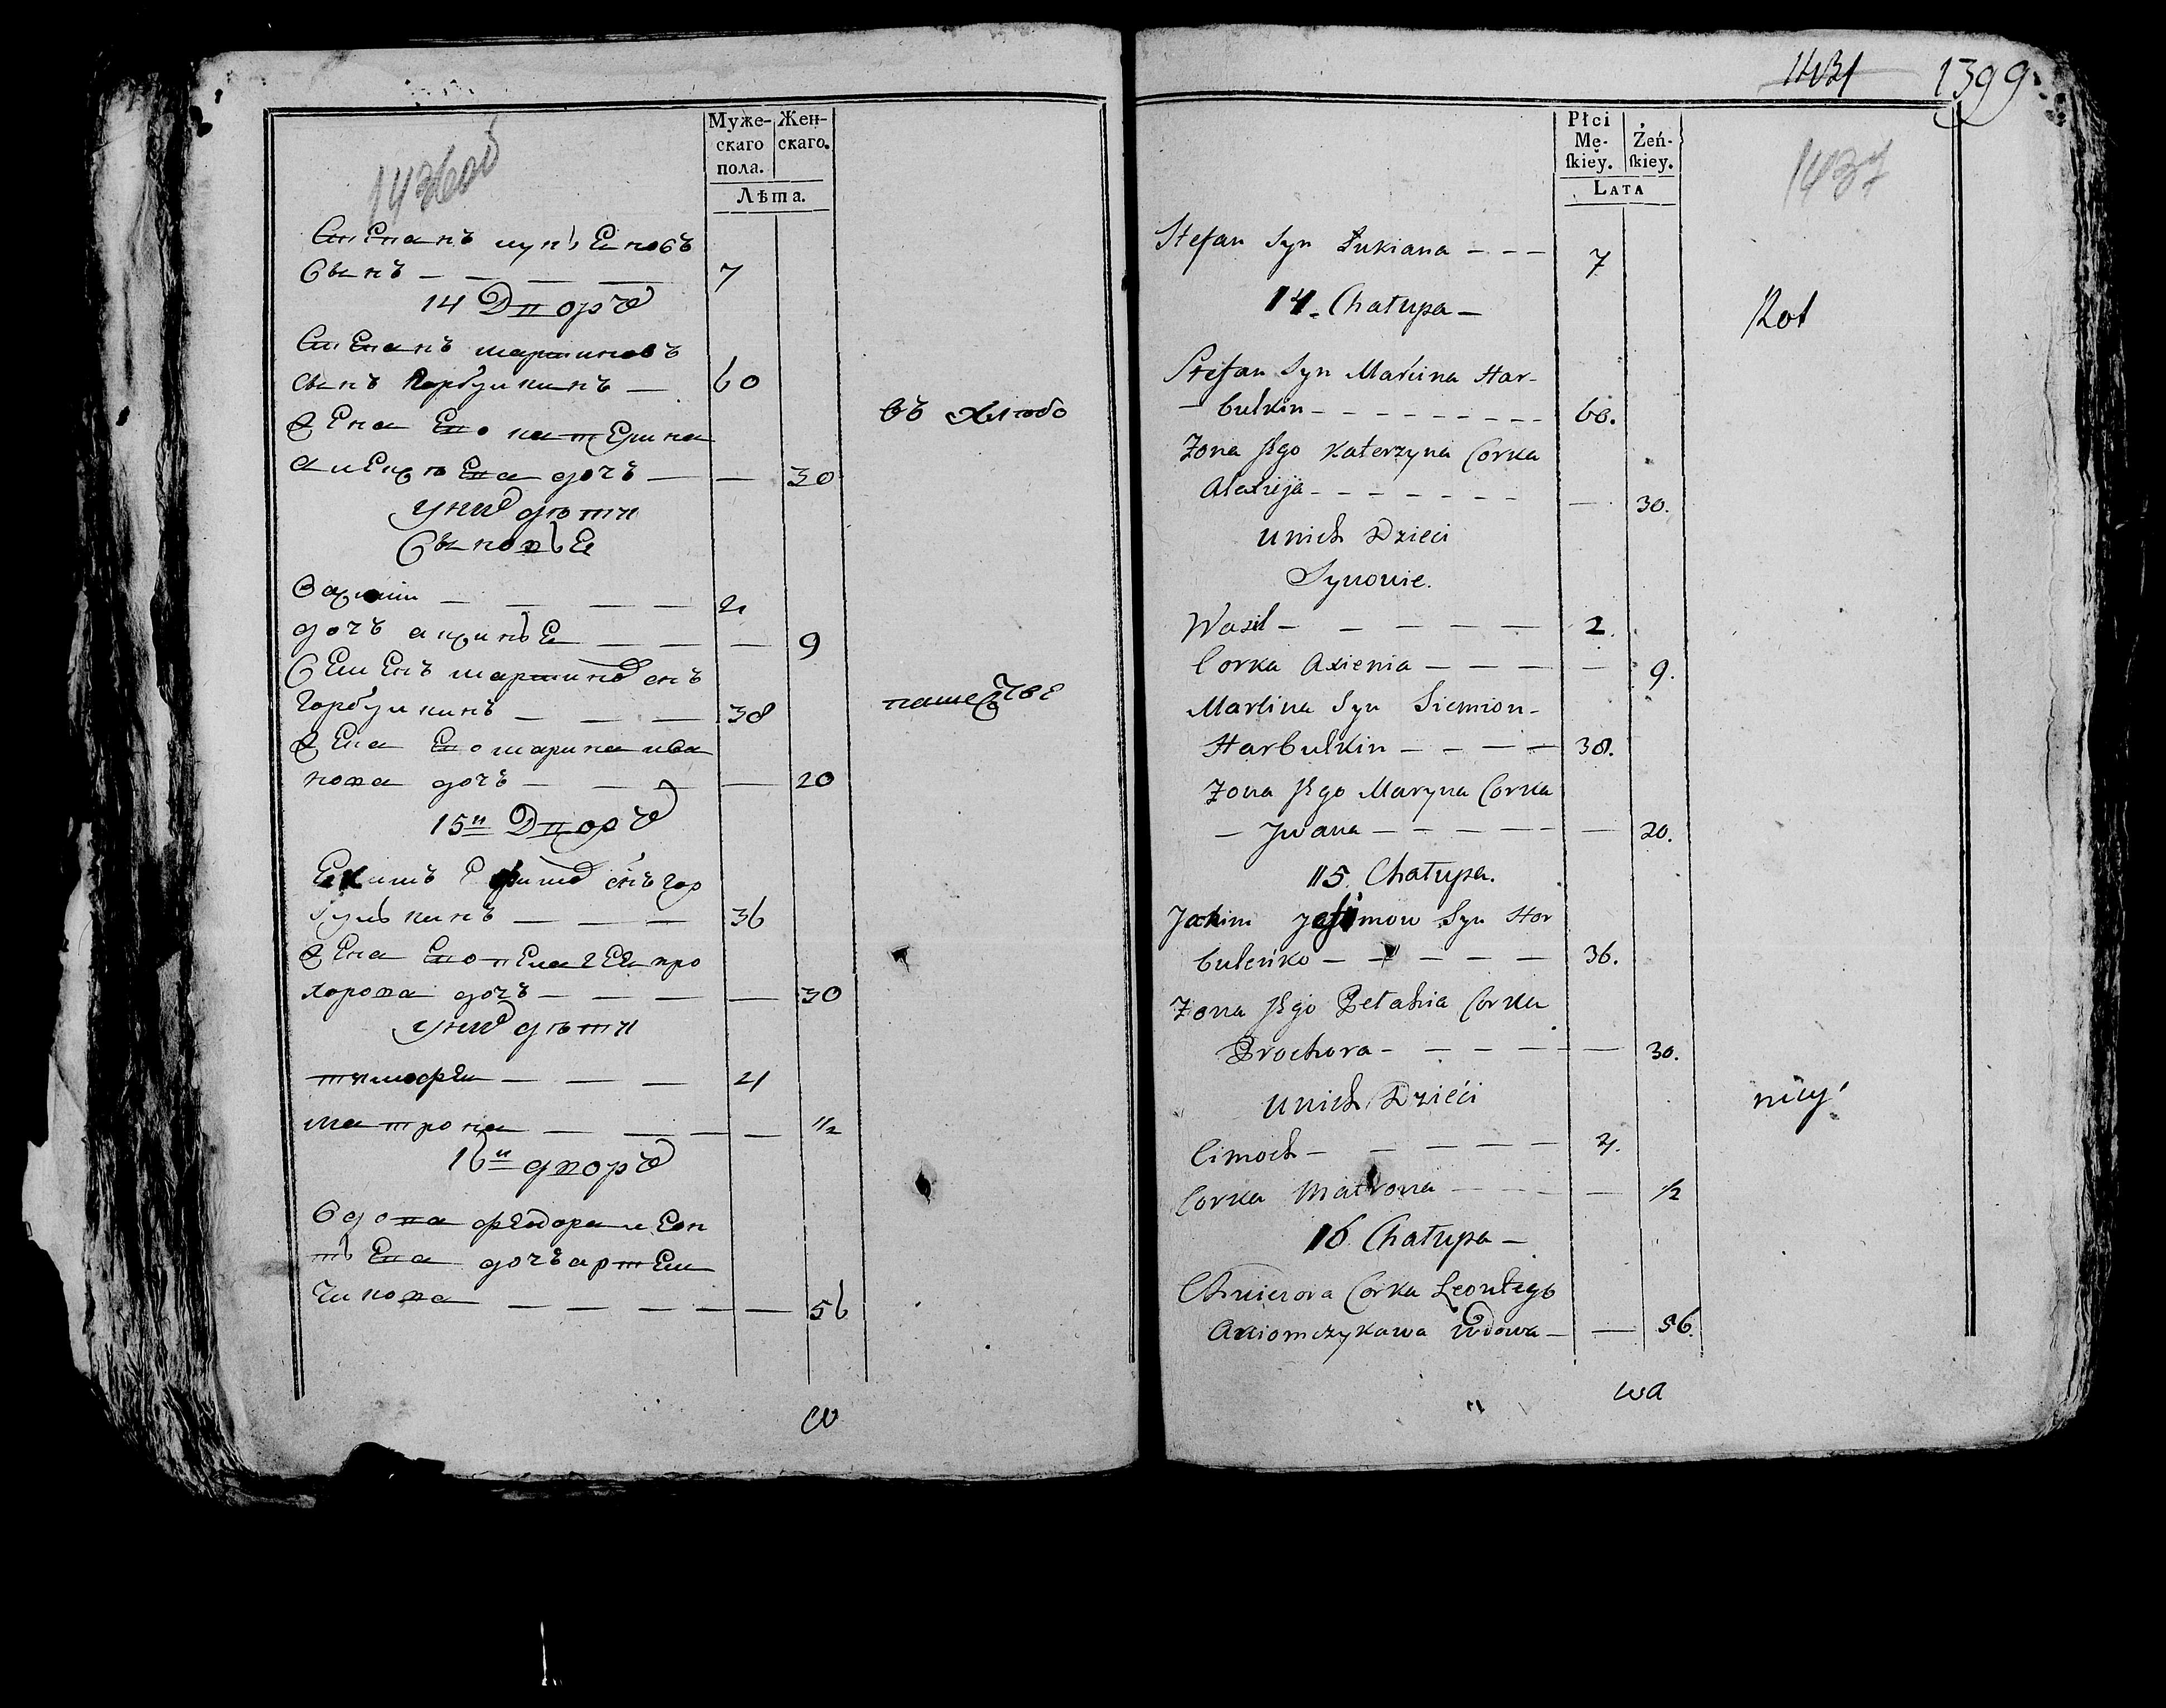 1436об
Муже- Жен-
скаго скаго.
пола.
Лѣта.
Степанъ лукьеновъ
Сынъ — — — — 7
14 Дворъ
Степанъ мартиновъ
сынъ Горбулинъ — 60
Жена Его катерина
алексѣева дочъ — — 30
уних дѣти
Сыновье
— — — — 2
дочъ аксинье — — — 9
Семенъ мартинов снъ
Горбулкинъ — — — 38
Жена Его марина ива
нова дочъ — — — — 20
15й Дворъ
Екимъ Ефимов снъ гор
булькинъ — — — 36
Жена Его пелагеа про
хорова дочъ — — — — 30
уних дѣти
тимофеи — — — 4
матрона — — — — 1/2
16й дворъ
вдова феодора леон
тьева дочъ артем
чикова — — — — — — 56
въ
1431 1399
Płci
Mę- Żeń-
skiey. skiey.
LATA
1437
Stefan Syn Łukiana - - - 7
14. Chałupa —
Kot
Stefan Syn Marcina Har-
- bułkin - - - - - - - - 60.
Żona Jego Katerzyna Corka
Alexieja - - - - - - - — 30.
unich Dzieci
Synowie.
Wasil — — — — — — 2.
Corka Axienia — — — — — 9.
Marcina Syn Siemion -
Harbulkin — — — — 38.
Żona Jego Maryna Corka
— Jwana — — — — — — 20.
15. Chałupa.
Jachim Jefimow Syn Hor
buleńko — — — — — — 36.
Żona Jego Pelahia Corka
Prochora - — — — — 30.
unich Dzieci
Cimoch — — — — — 4.
Corka Matrona — — — — 1/2
16 Chałupa —
Chwierora Corka Leontego
Arciomczykawa Wdowa — — 56.
wa